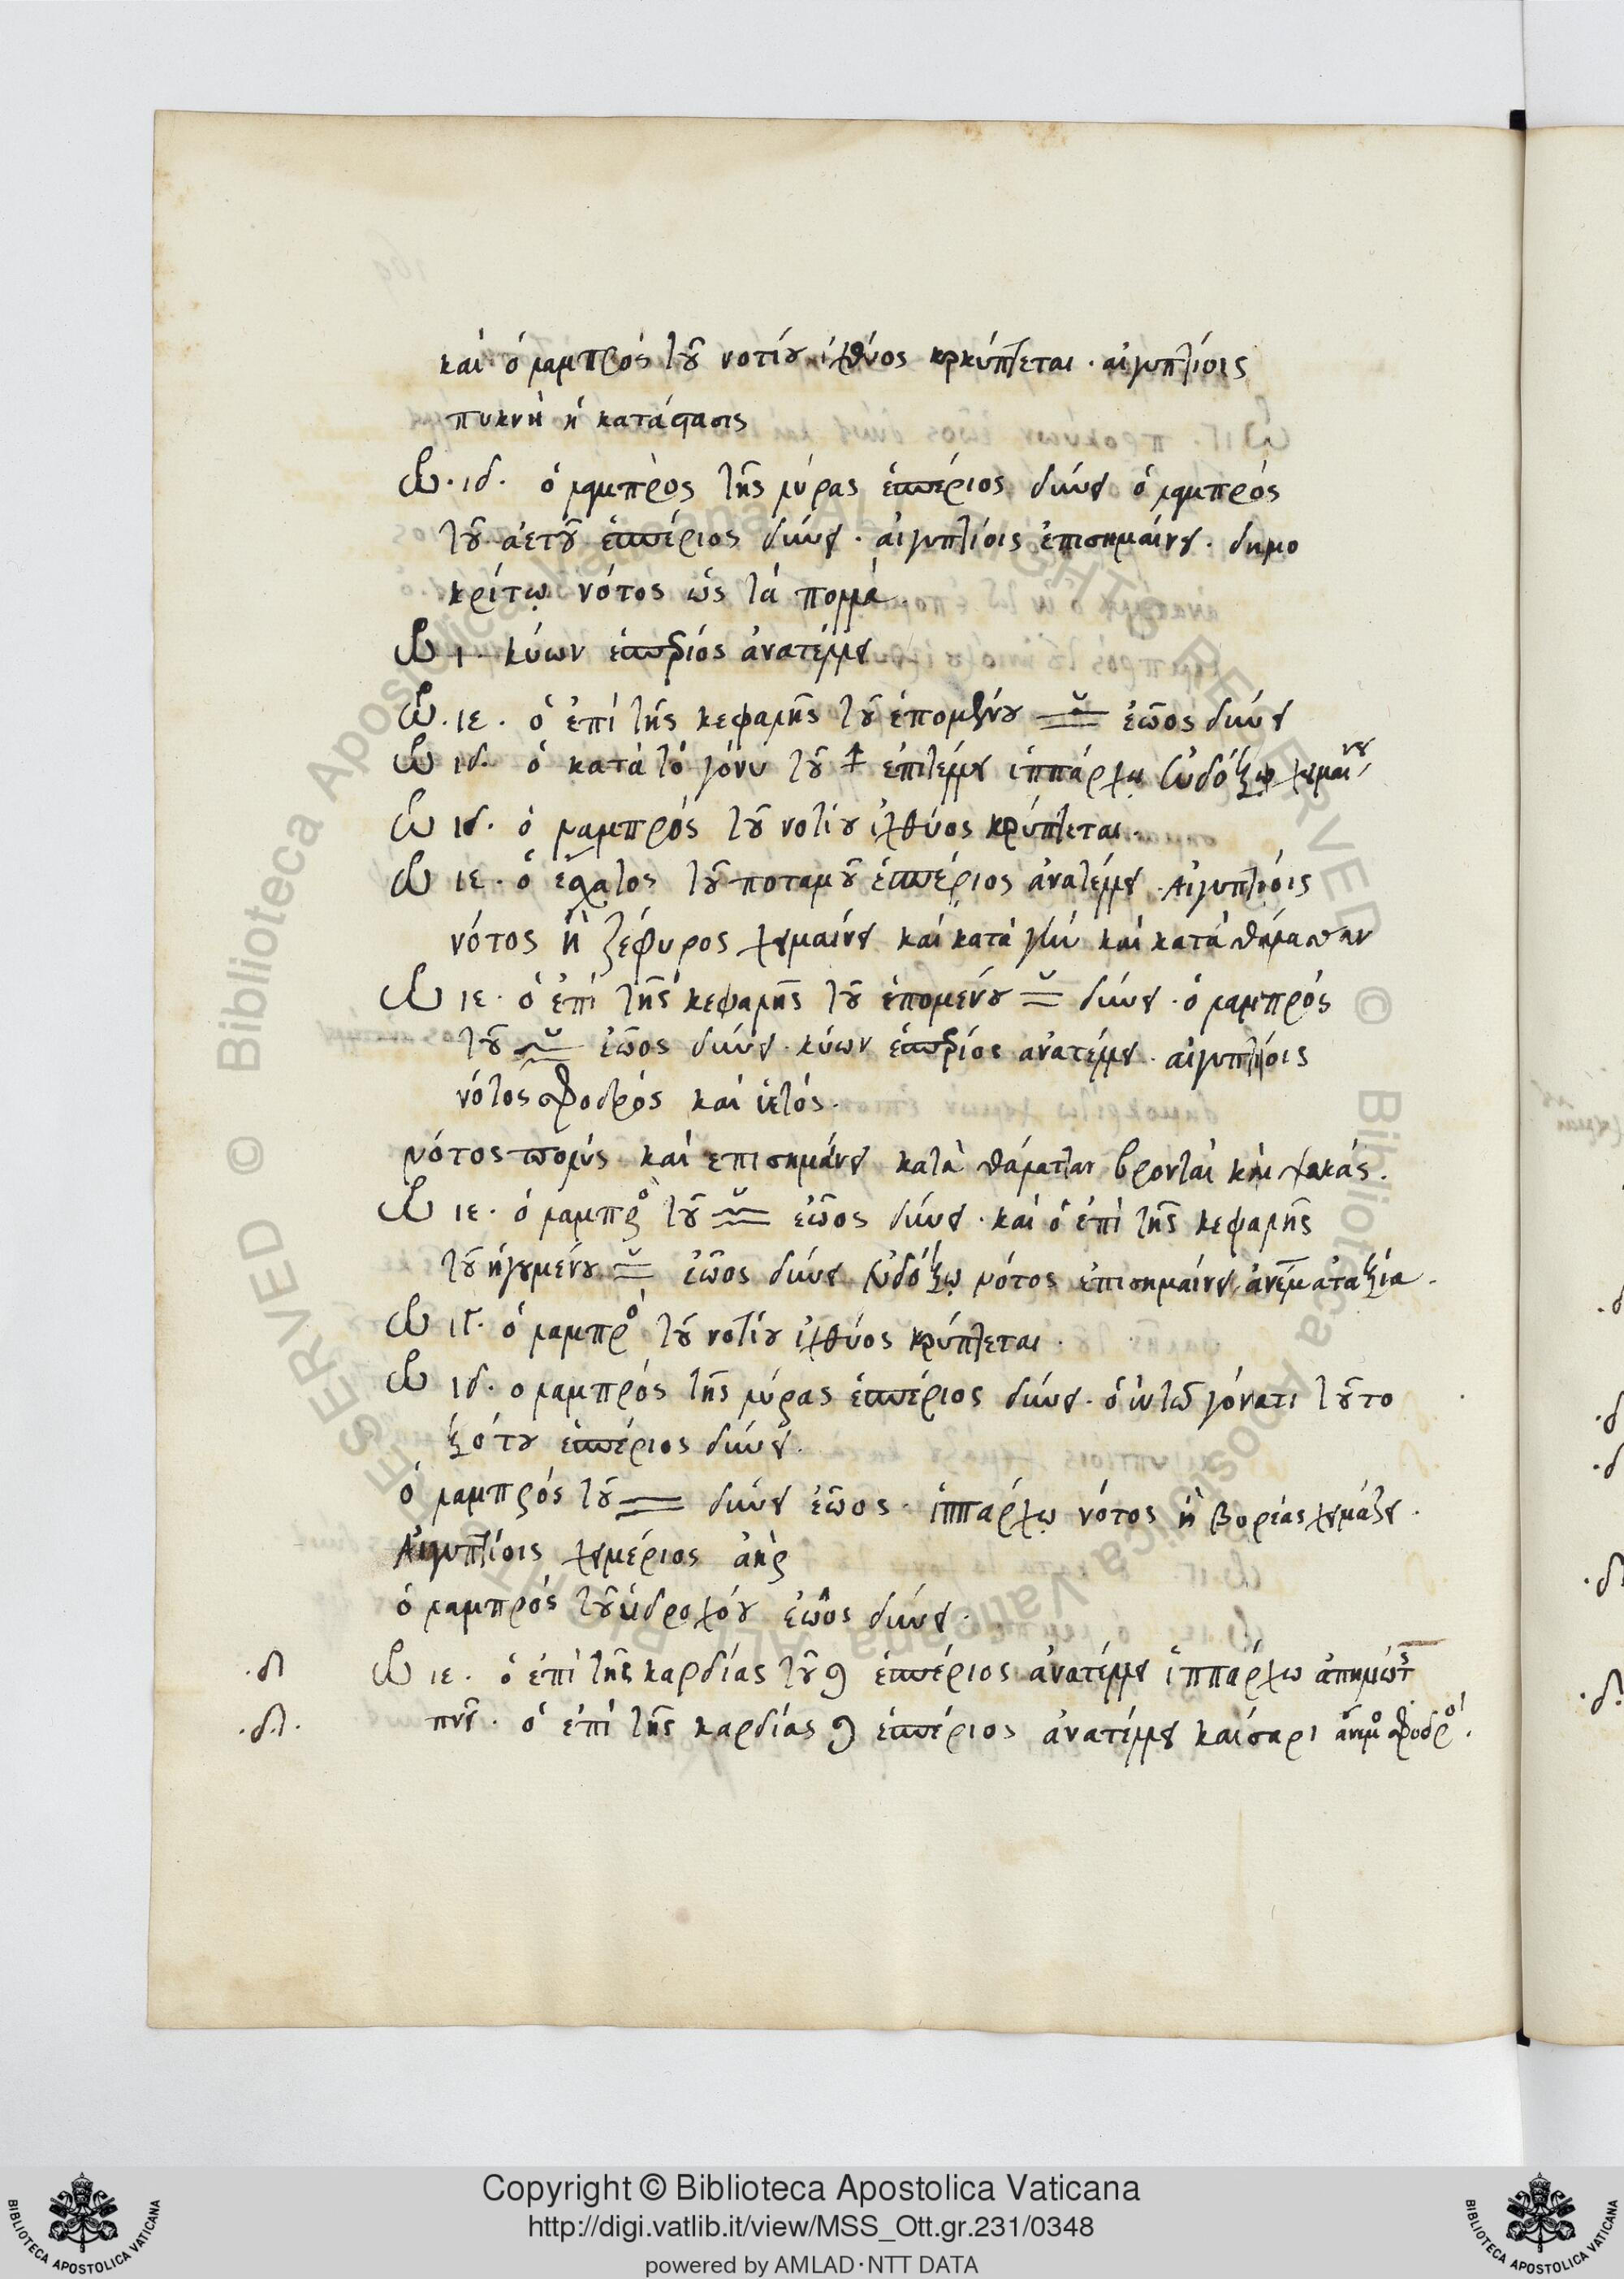 καὶ ὁ λαμπρὸς τοῦ νοτίου ἰχθύος κρύπτεται · αἰγυπτίοις
πυκνὴ ἡ κατάστασις
ὡ · ιδ · ὁ λαμπρὸς τῆς λύρας ἑσπέριος δύνει ὁ λαμπρὸς
τοῦ ἀετοῦ ἑσπέριος δύνει · αἰγυπτίοις ἐπισημαίνει · δημο
κρίτῳ νότος ὡς τὰ πολλά
κύων ἑσπέριος ἀνατέλλει
ὡ · ιε · ὁ ἐπὶ τῆς κεφαλῆς τοῦ ἑπομένου ♊ ἑῶος δύνει
ὡ ιδ · ὁ κατὰ τὸ γόνυ τοῦ ♐ ἐπιτέλλει ἱππάρχῳ εὐδόξῳ χειμαίνει
ὡ ιδ · ὁ λαμπρὸς τοῦ νοτίου ἰχθύος κρύπτεται ·
ὡ ιε · ὁ ἔσχατος τοῦ ποταμοῦ ἑσπέριος ἀνατέλλει · Αἰγυπτίοις
νότος ἢ ζέφυρος χειμαίνει καὶ κατὰ γῆν καὶ κατὰ θάλασσαν
ὡ ιε · ὁ ἐπὶ τῆς κεφαλῆς τοῦ ἑπομένου δύνει · ὁ λαμπρὸς
τοῦ ἑῶος δύνει · κύων ἑσπέριος ἀνατέλλει · αἰγυπτίοις
νότος σφοδρὸς καὶ ὑετός ·
νότος πολὺς καὶ ἐπισημαίνει κατὰ θάλατταν βρονταὶ καὶ ψεκάς ·
ὡ ιε · ὁ λαμπρὸς τοῦ ἑῶος δύνει · καὶ ὁ ἐπὶ τῆς κεφαλῆς
τοῦ ἡγουμένου ἑῶος δύνει εὐδόξῳ νότος ἐπισημαίνει ἀνέμων ἀταξία ·
ὡ ιγ · ὁ λαμπρὸς τοῦ νοτίου ἰχθύος κρύπτεται ·
ὡ ιδ · ὁ λαμπρὸς τῆς λύρας ἑσπέριος δύνει · ὁ ἐν τῷ γόνατι τοῦ το
ξότου ἑσπέριος δύνει ·
ὁ λαμπρὸς τοῦ δύνει ἑῶος · ἱππάρχῳ νότος ἢ βορέας χειμάζει ·
Αἰγυπτίοις χειμέριος ἀὴρ
ὁ λαμπρὸς τοῦ ὑδροχόου ἑῶος δύνει ·
ὡ ιε · ὁ ἐπὶ τῆς καρδίας τοῦ ♌ ἑσπέριος ἀνατέλλει ἱππάρχῳ ἀπηλιώτης
πνεῖ · ὁ ἐπὶ τῆς καρδίας ♌ ἑσπέριος ἀνατέλλει καίσαρι ἄνεμος σφοδρός ·
Copyright © Biblioteca Apostolica Vaticana
http://digi.vatlib.it/view/MSS_Ott.gr.231/0348
powered by AMLAD·NTT DATA